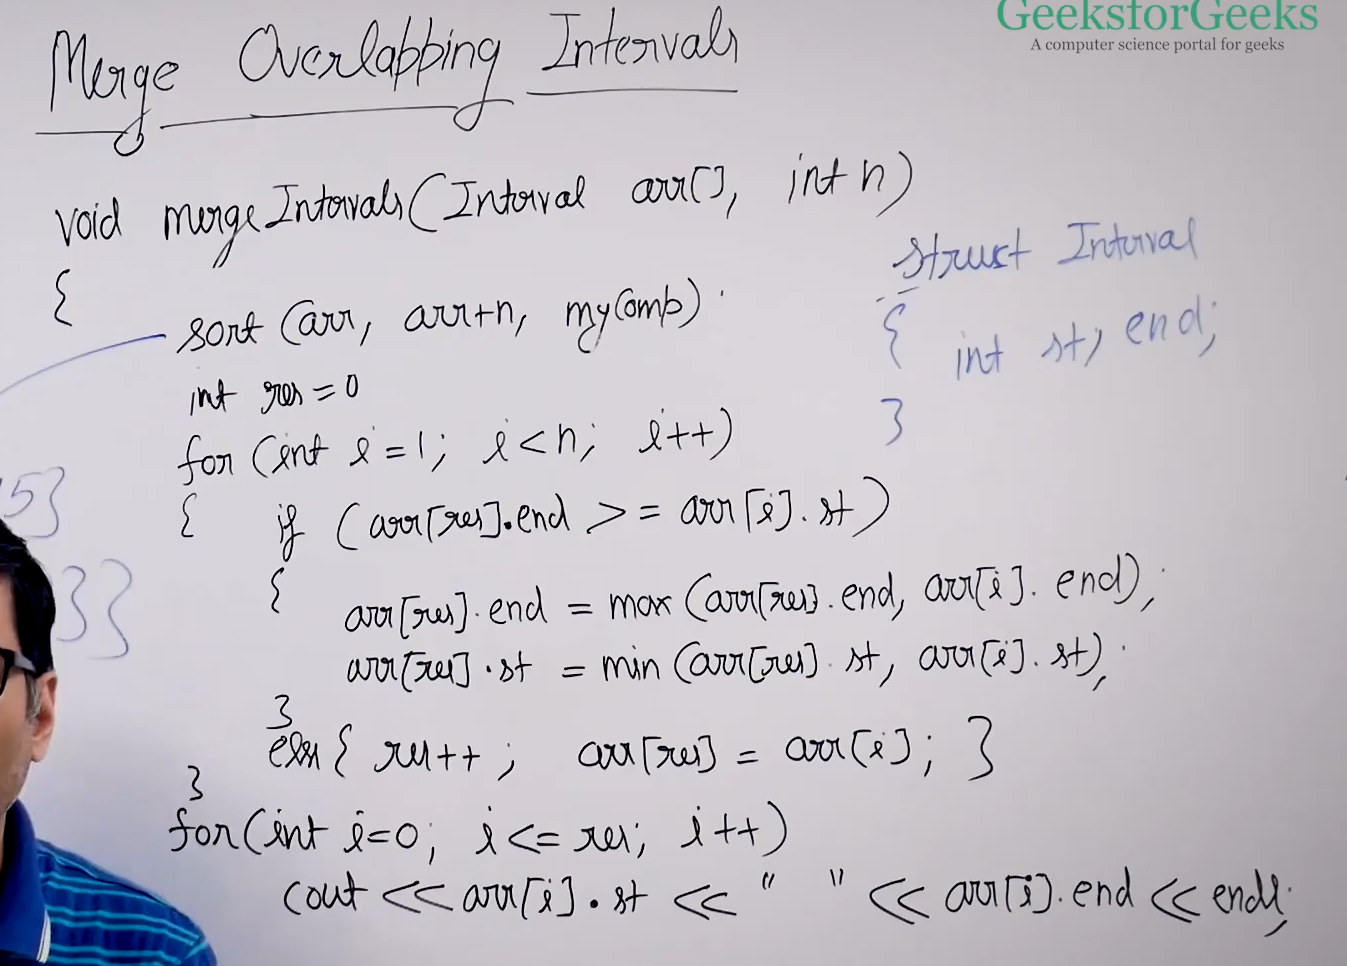 GeeksforGeeks
A computer science portal for geeks
Merge Overlapping Intervals
void mergeIntervals(Interval arr[], int n)
{
sort (arr, arr+n, myComp)
int res = 0
for (int i = 1; i < n; i++)
{ if (arr[res].end >= arr[i].st)
{
arr[res].end = max (arr[res].end, arr[i].end);
arr[res].st = min (arr[res].st, arr[i].st);
}
else { res++; arr[res] = arr[i]; }
}
for (int i=0; i <= res; i++)
cout << arr[i].st << " " << arr[i].end << endl;
struct Interval
{
int st, end;
}
5}
3}}